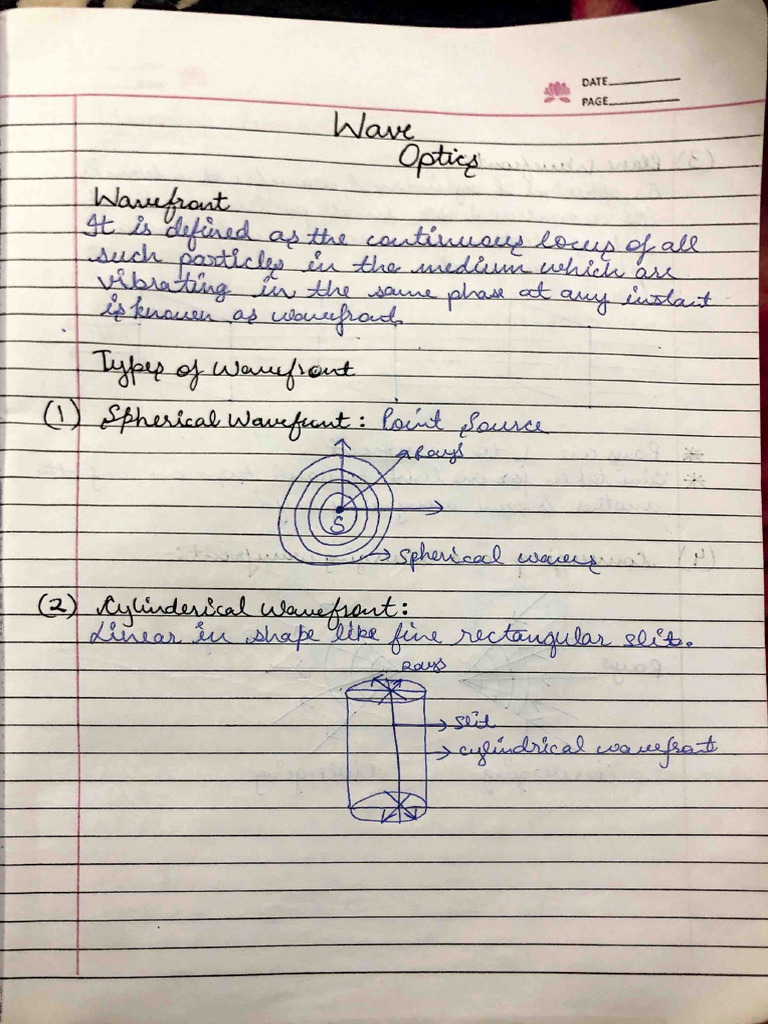 DATE
PAGE
Wave
Optics
Wavefront
It is defined as the continuous locus of all
such particles in the medium which are
vibrating in the same phase at any instant
is known as wavefront.
Types of Wavefront
(1) Spherical Wavefront : Point Source
Rays
S
Spherical waves
(2) Cylinderical Wavefront :
Linear in shape like fine rectangular slits.
Rays
slit
cylindrical wavefront